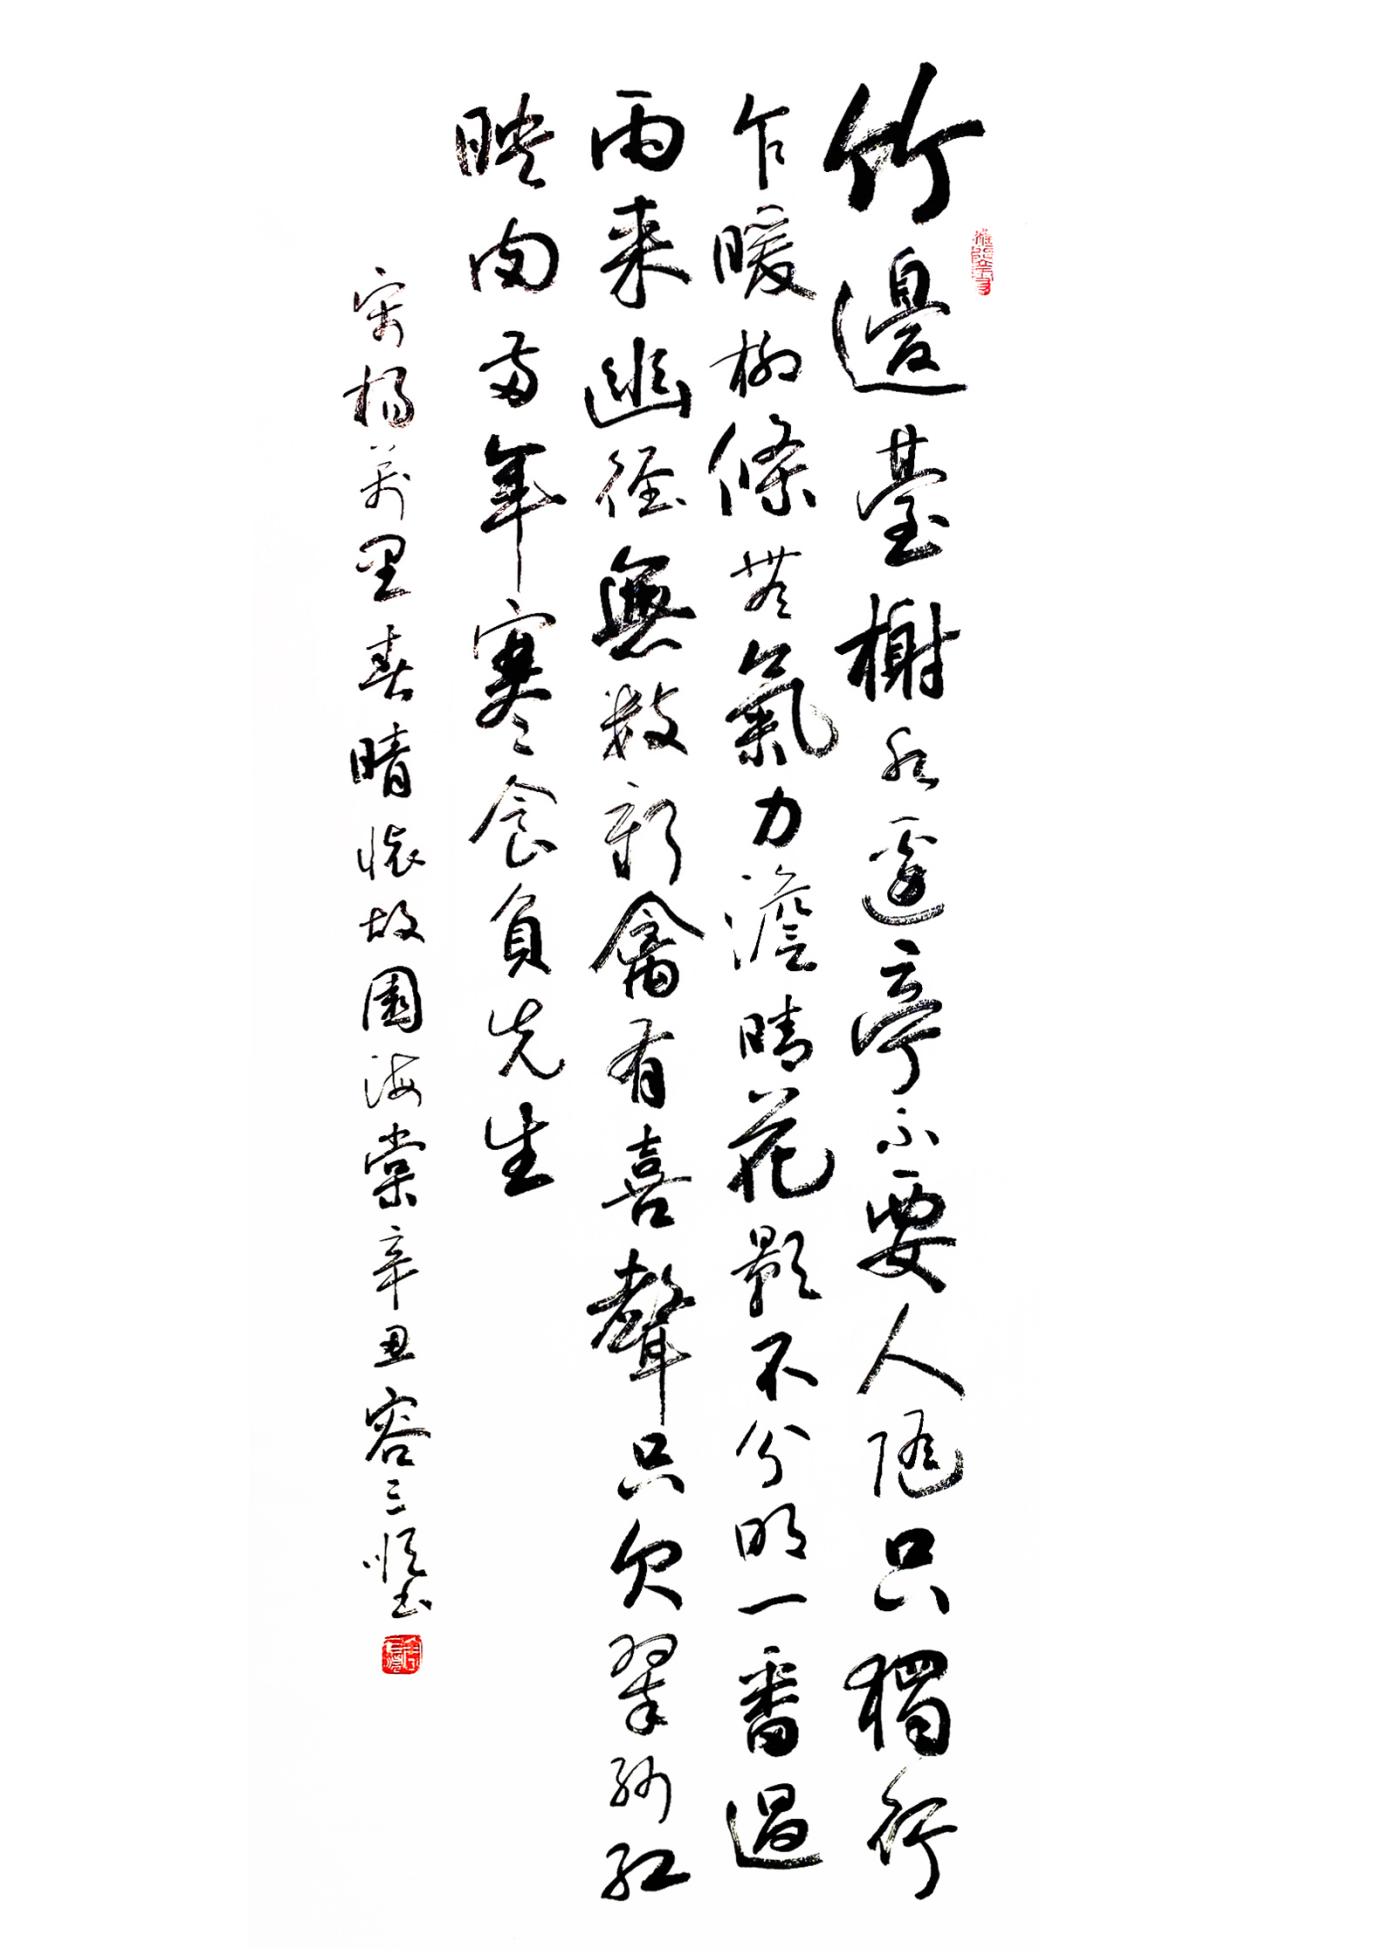 竹邊臺榭水邊亭不要人隨只獨行
乍暖柳條無氣力澹晴花影不分明一番過
雨来幽徑無数新禽有喜聲只欠翠紗紅
映肉兩年寒食負先生
宋楊萬里春晴懷故園海棠辛丑容三順書